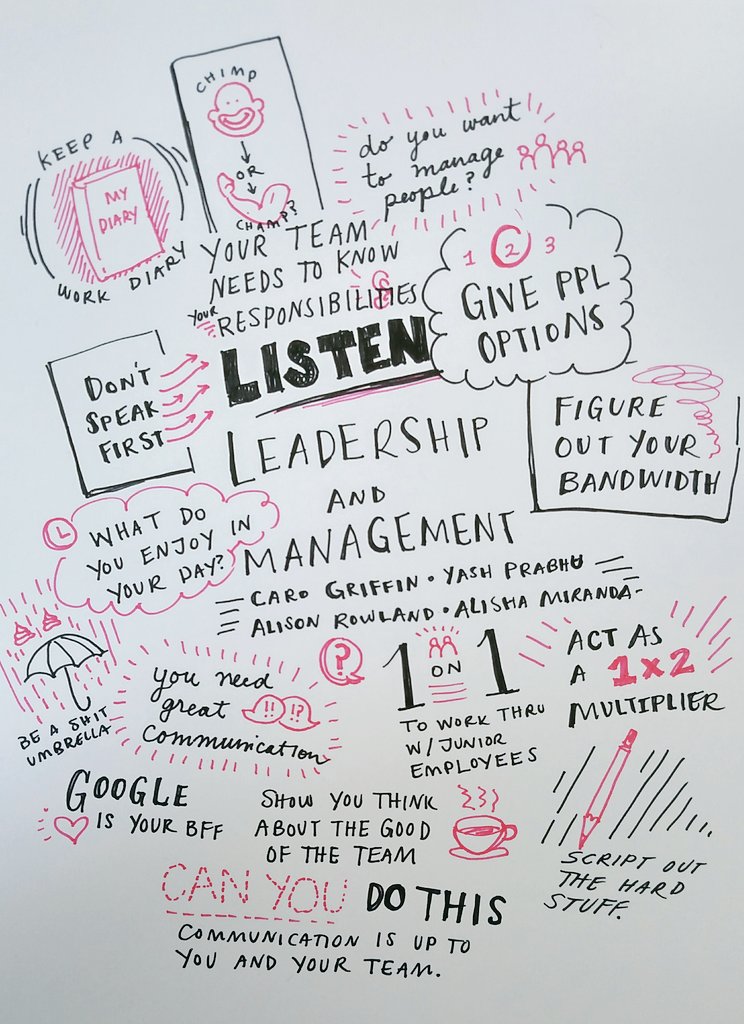 CHIMP
OR
CHAMP?
KEEP A
MY
DIARY
WORK DIARY
do you want
to manage
people?
YOUR TEAM
NEEDS TO KNOW
YOUR RESPONSIBILITIES
1 2 3
GIVE PPL
OPTIONS
DON'T
SPEAK
FIRST
LISTEN
LEADERSHIP
AND
MANAGEMENT
FIGURE
OUT YOUR
BANDWIDTH
WHAT DO
YOU ENJOY IN
YOUR DAY?
CARO GRIFFIN • YASH PRABHU
ALISON ROWLAND • ALISHA MIRANDA
BE A SHIT
UMBRELLA
you need
great
!! !?
communication
?
1 ON 1
TO WORK THRU
W/ JUNIOR
EMPLOYEES
ACT AS
A 1x2
MULTIPLIER
GOOGLE
IS YOUR BFF
SHOW YOU THINK
ABOUT THE GOOD
OF THE TEAM
SCRIPT OUT
THE HARD
STUFF.
CAN YOU DO THIS
COMMUNICATION IS UP TO
YOU AND YOUR TEAM.